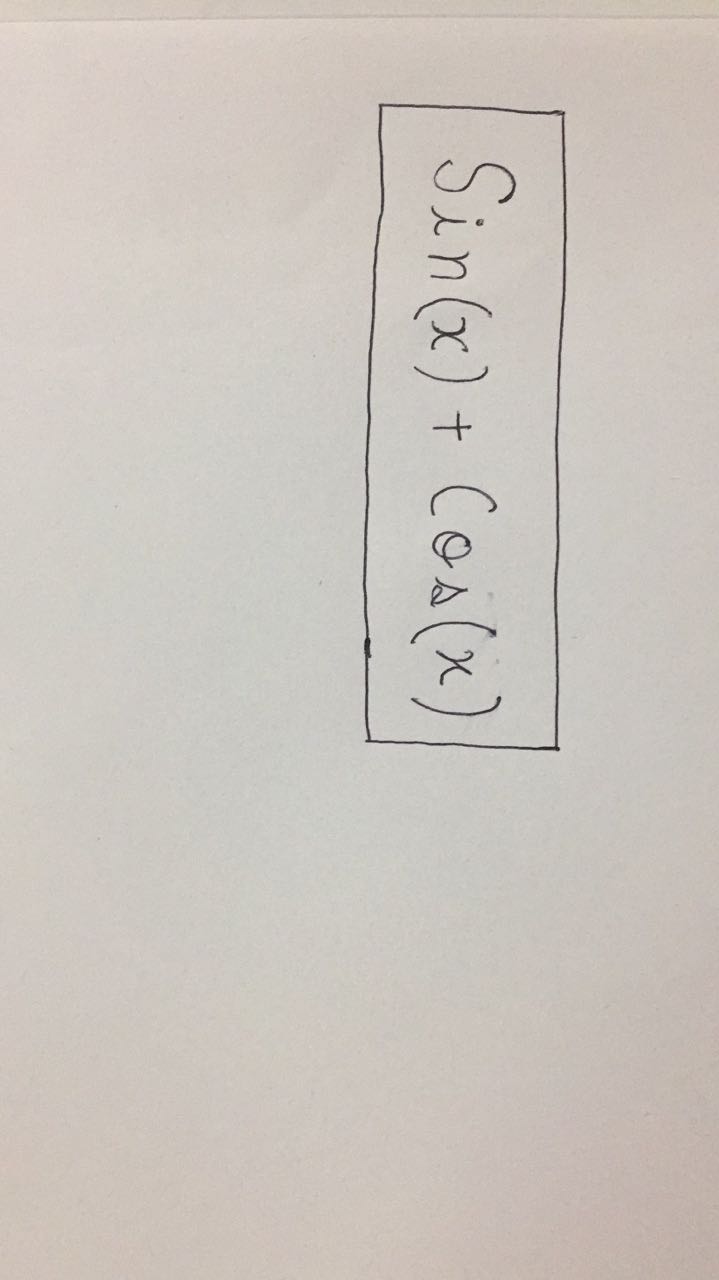 Sin(x) + Cos(x)